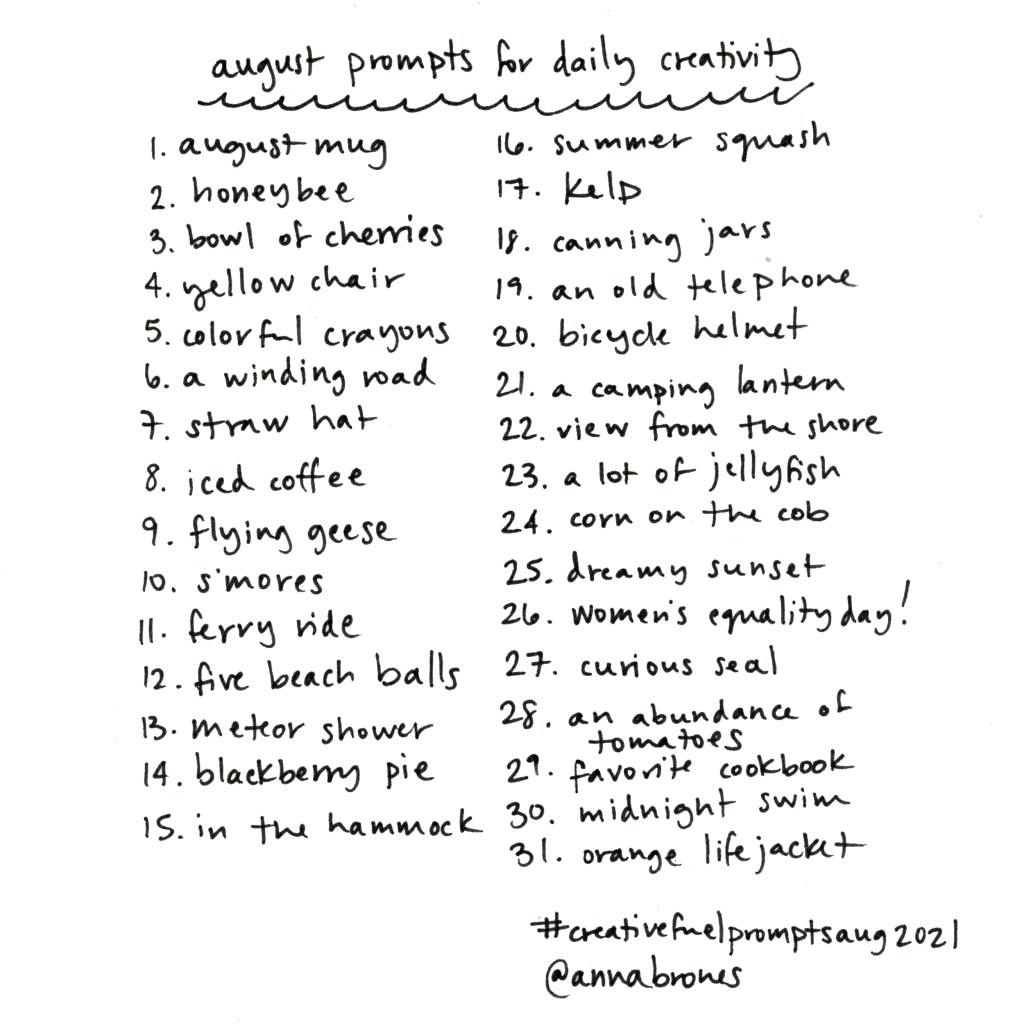 august prompts for daily creativity
1. august mug
2. honeybee
3. bowl of cherries
4. yellow chair
5. colorful crayons
6. a winding road
7. straw hat
8. iced coffee
9. flying geese
10. s'mores
11. ferry ride
12. five beach balls
13. meteor shower
14. blackberry pie
15. in the hammock
16. summer squash
17. kelp
18. canning jars
19. an old telephone
20. bicycle helmet
21. a camping lantern
22. view from the shore
23. a lot of jellyfish
24. corn on the cob
25. dreamy sunset
26. women's equality day!
27. curious seal
28. an abundance of
tomatoes
29. favorite cookbook
30. midnight swim
31. orange life jacket
#creativefuelpromptsaug2021
@annabrones